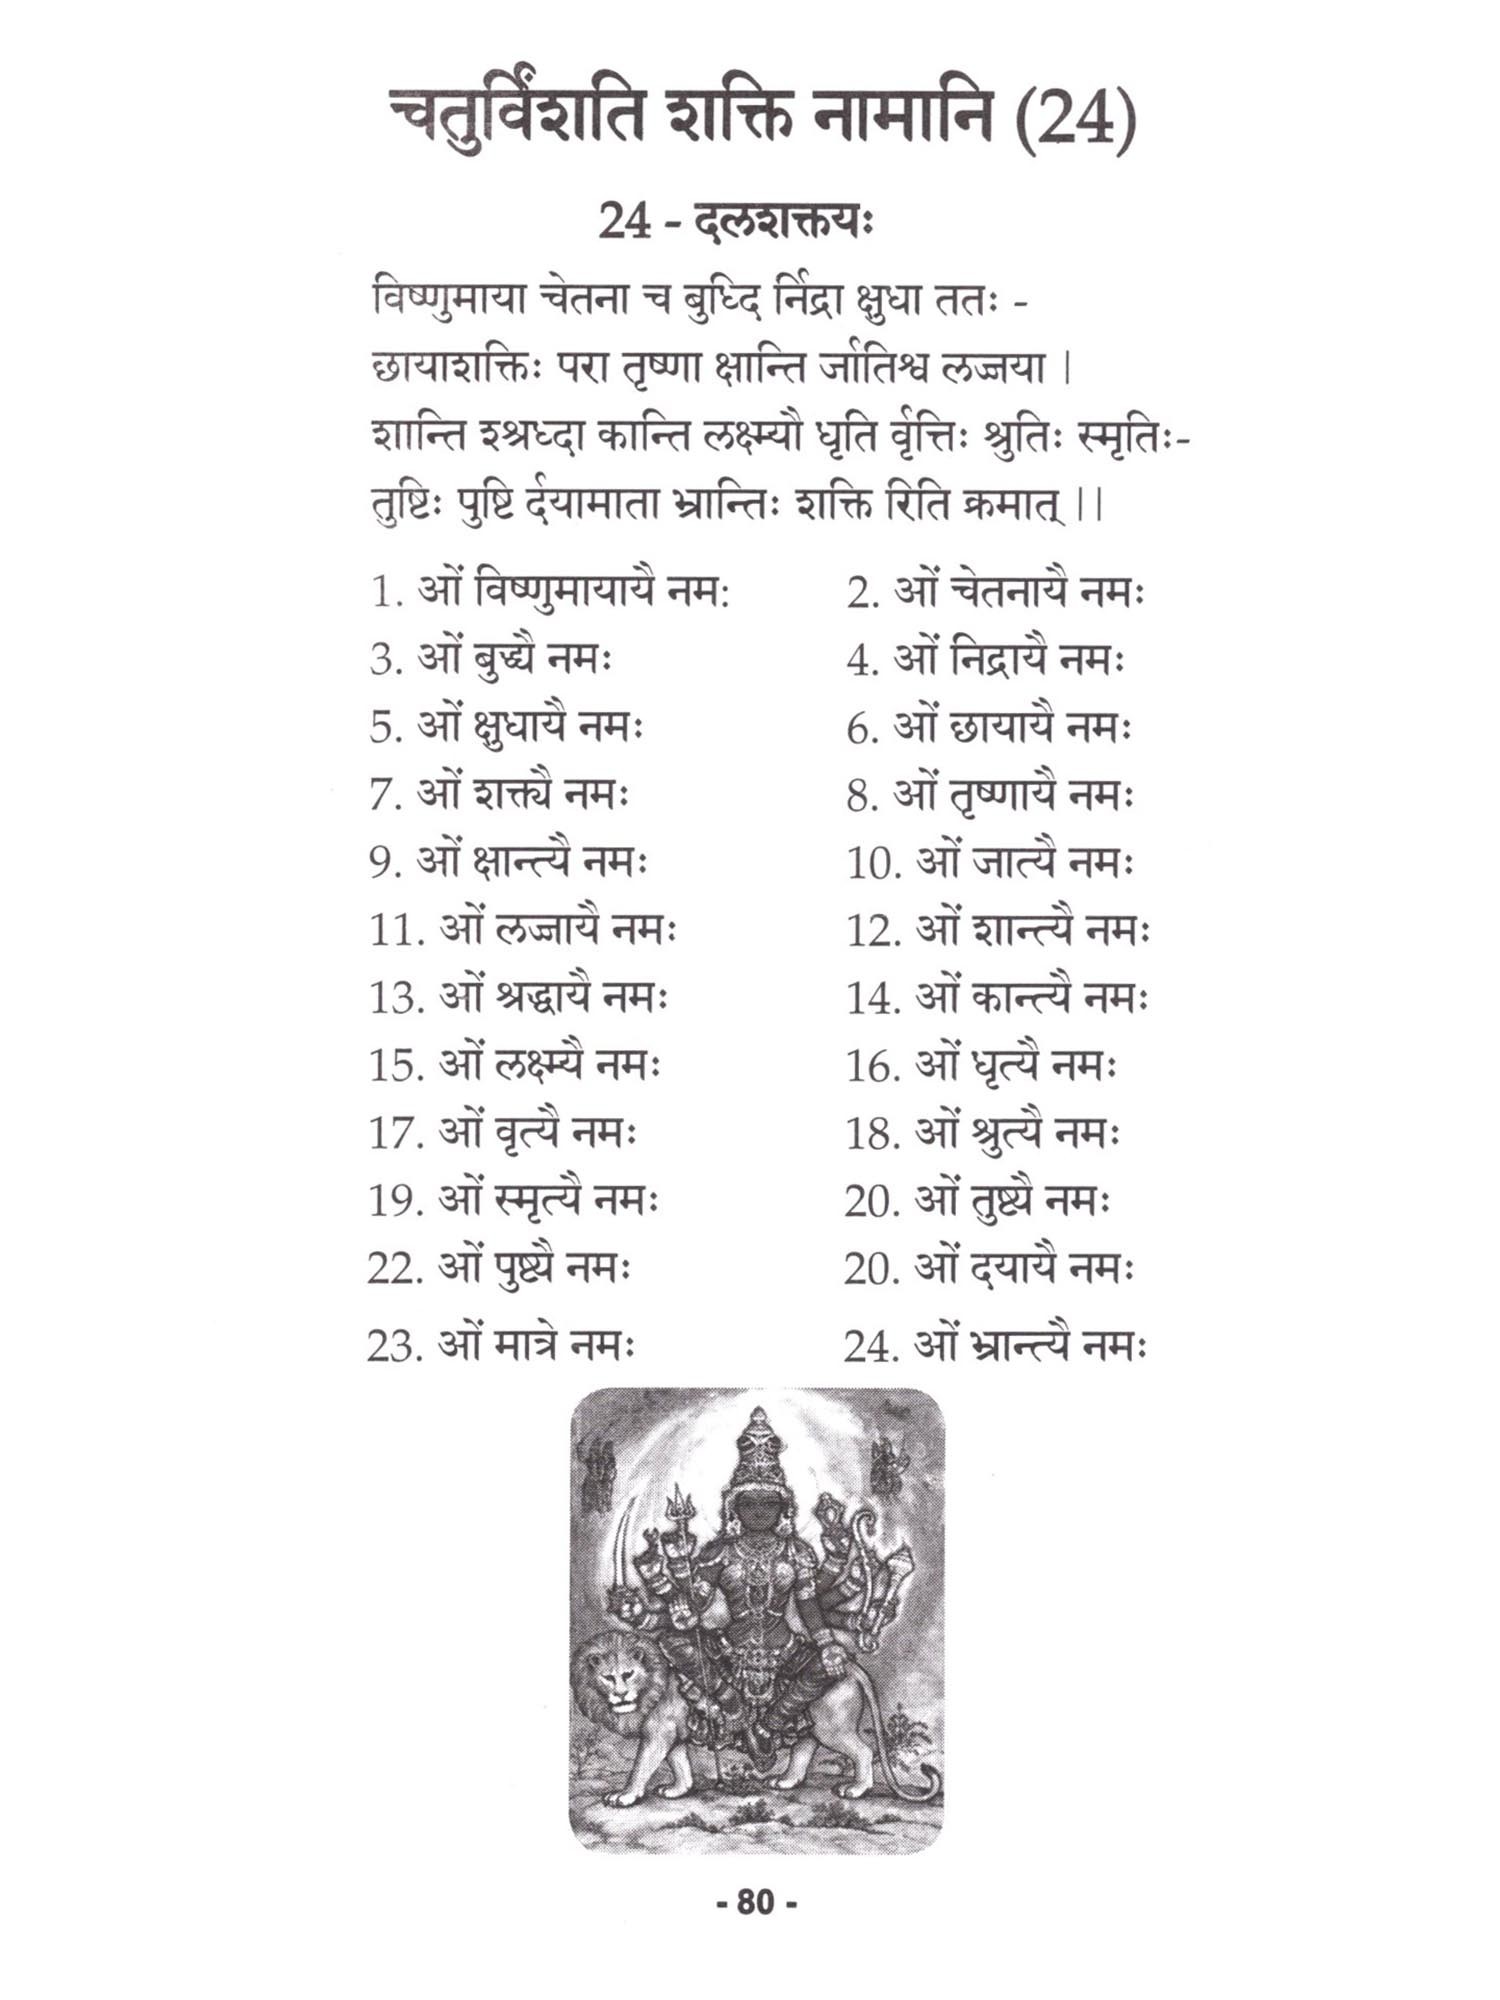 चतुर्विंशति शक्ति नामानि (24)
24 - दलशक्तयः
विष्णुमाया चेतना च बुध्दि र्निद्रा क्षुधा ततः -
छायाशक्तिः परा तृष्णा क्षान्ति र्जातिश्च लज्जया |
शान्ति श्श्रध्दा कान्ति लक्ष्म्यौ धृति र्वृत्तिः श्रुतिः स्मृतिः-
तुष्टिः पुष्टि र्दयामाता भ्रान्तिः शक्ति रिति क्रमात् ||
1. ओं विष्णुमायायै नमः 2. ओं चेतनायै नमः
3. ओं बुद्ध्यै नमः 4. ओं निद्रायै नमः
5. ओं क्षुधायै नमः 6. ओं छायायै नमः
7. ओं शक्त्यै नमः 8. ओं तृष्णायै नमः
9. ओं क्षान्त्यै नमः 10. ओं जात्यै नमः
11. ओं लज्जायै नमः 12. ओं शान्त्यै नमः
13. ओं श्रद्धायै नमः 14. ओं कान्त्यै नमः
15. ओं लक्ष्म्यै नमः 16. ओं धृत्यै नमः
17. ओं वृत्यै नमः 18. ओं श्रुत्यै नमः
19. ओं स्मृत्यै नमः 20. ओं तुष्ट्यै नमः
22. ओं पुष्ट्यै नमः 20. ओं दयायै नमः
23. ओं मात्रे नमः 24. ओं भ्रान्त्यै नमः
- 80 -